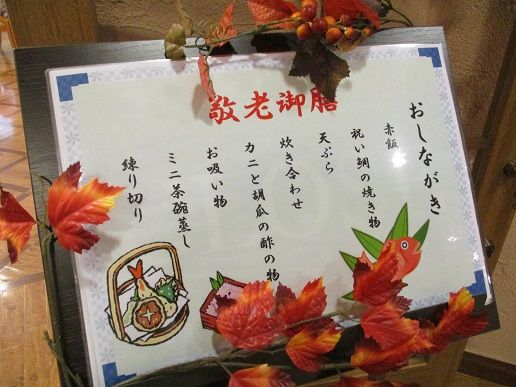 敬老御膳
おしながき
赤飯
祝い鯛の焼き物
天ぷら
炊き合わせ
カニと胡瓜の酢の物
お吸い物
ミニ茶碗蒸し
練り切り